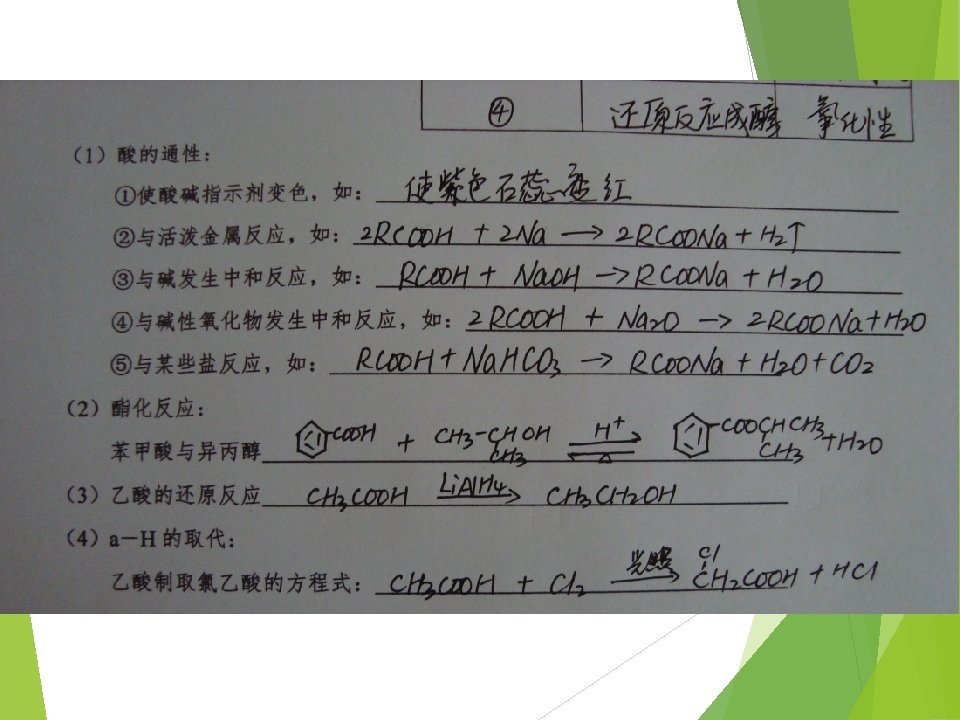 ④ 还原反应成醇 氧化性
(1) 酸的通性:
①使酸碱指示剂变色,如: 使紫色石蕊变红
②与活泼金属反应,如: 2RCOOH + 2Na → 2RCOONa + H2↑
③与碱发生中和反应,如: RCOOH + NaOH → RCOONa + H2O
④与碱性氧化物发生中和反应,如: 2RCOOH + Na2O → 2RCOONa + H2O
⑤与某些盐反应,如: RCOOH + NaHCO3 → RCOONa + H2O + CO2
(2) 酯化反应:
苯甲酸与异丙醇 COOH + CH3-CHOH CH3 H+ △ COOCHCH3 CH3 + H2O
(3) 乙酸的还原反应 CH3COOH LiAlH4 → CH3CH2OH
(4) a-H 的取代:
乙酸制取氯乙酸的方程式: CH3COOH + Cl2 光照 → Cl CH2COOH + HCl